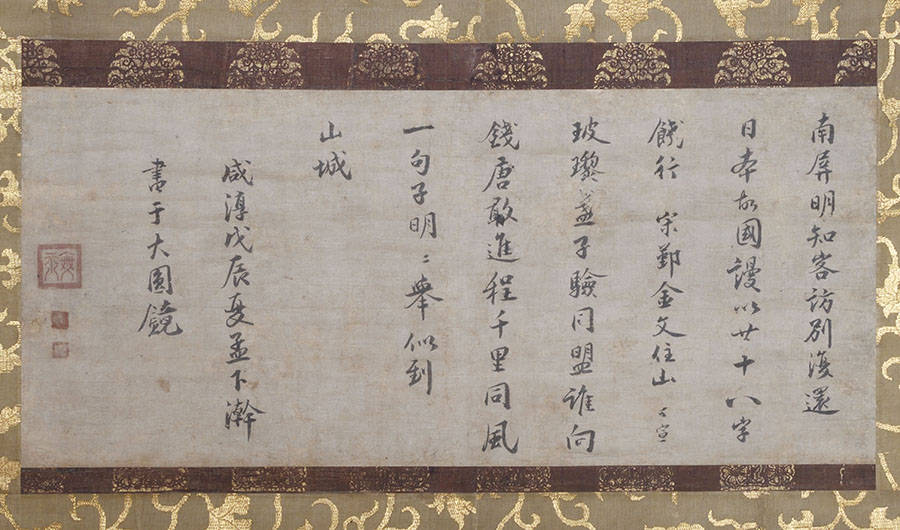 南屏明知客訪別復還
日本故國謾以廿十八字
餞行 宋鄞金文住山 了宣
玻瓈盞子驗同盟誰向
錢唐敢進程千里同風
一句子明〻舉似到
山城
咸淳戊辰夏孟下澣
書于大圓鏡